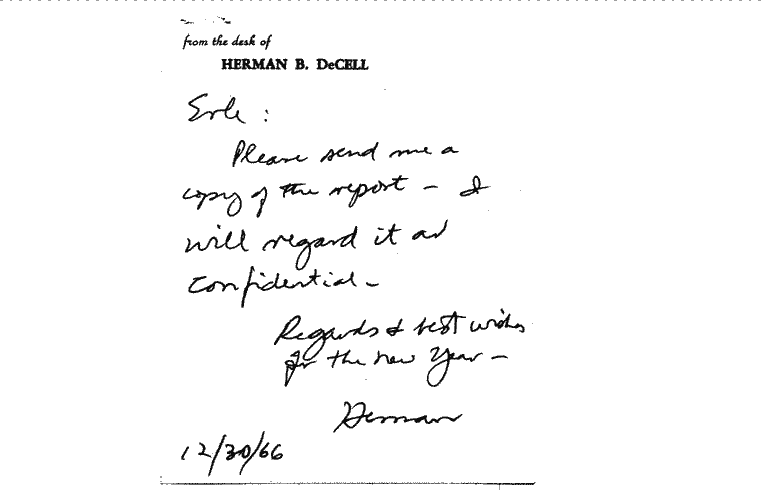 from the desk of
HERMAN B. DeCELL
Erle :
Please send me a
copy of the report – I
will regard it as
confidential –
Regards & best wishes
for the new Year –
Herman
12/30/66